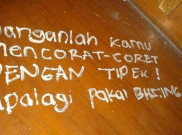 Janganlah kamu
MENCORAT-CORET
DENGAN TIPEK!
apalagi pakai